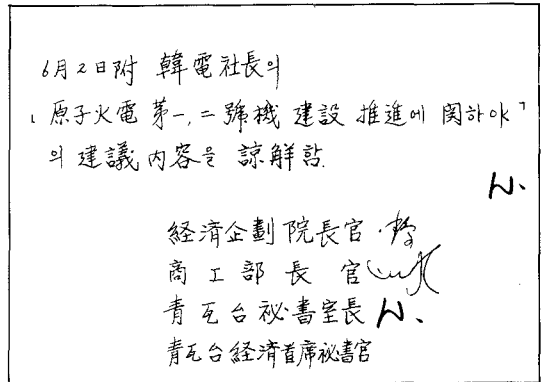 6月2日附 韓電社長의
「原子火電 第一, 二號機 建設 推進에 関하야」
의 建議內容을 諒解함.
経済企劃院長官
商工部長官
青瓦台秘書室長
青瓦台経済首席秘書官